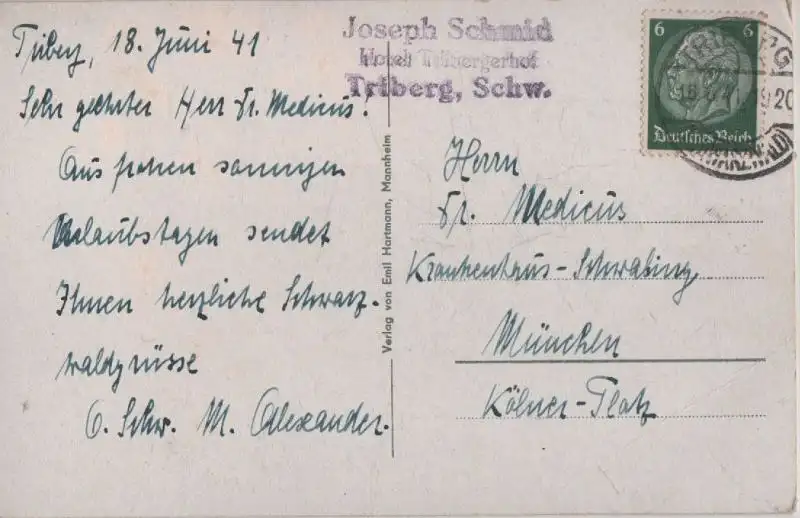 Triberg, 18. Juni 41
Sehr geehrter Herr Dr. Medicus!
Aus frohen sonnigen
Urlaubstagen sendet
Ihnen herzliche Schwarz-
waldgrüsse
O. Schw. M. Alexander.
Joseph Schmid
Hotel Tribergerhof
Triberg, Schw.
Verlag von Emil Hartmann, Mannheim
6 6
Deutsches Reich
TRIBERG
Herrn
Dr. Medicus
Krankenhaus-Schwabing
München
Kölner-Platz